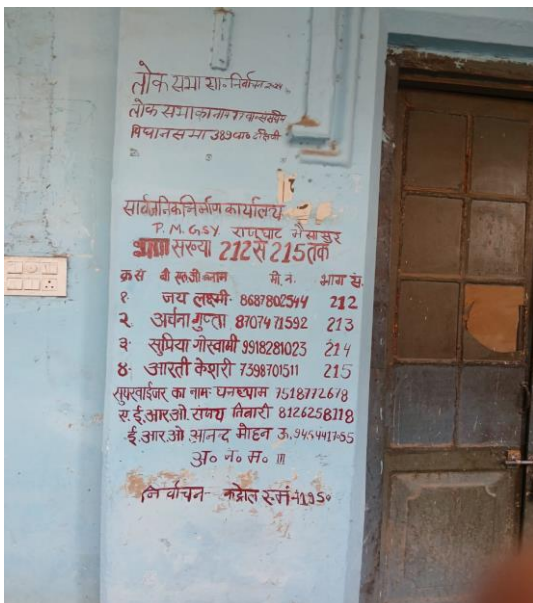 लोक सभा सा॰ निर्वाचन
लोक सभा का नाम
विधान सभा 389 वा॰ दक्षिणी
सार्वजनिक निर्माण कार्यालय
P.M.G.S.Y. राजघाट भैसासुर
संख्या 212 से 215 तक
क्र सं बी एल.ओ नाम मो. नं. भाग सं.
१. जय लक्ष्मी- 8687802544 212
२. अर्चना गुप्ता 8707471592 213
३. सुप्रिया गोस्वामी 9918281023 214
४. आरती केशरी 7398701511 215
सुपरवाईजर का नाम- घनश्याम 7518772678
ए. ई.आर.ओ. संजय तिवारी 8126258118
ई.आर.ओ आनन्द मोहन उ.
अ॰ न॰ म॰ III
निर्वाचन- कंट्रोल रूम